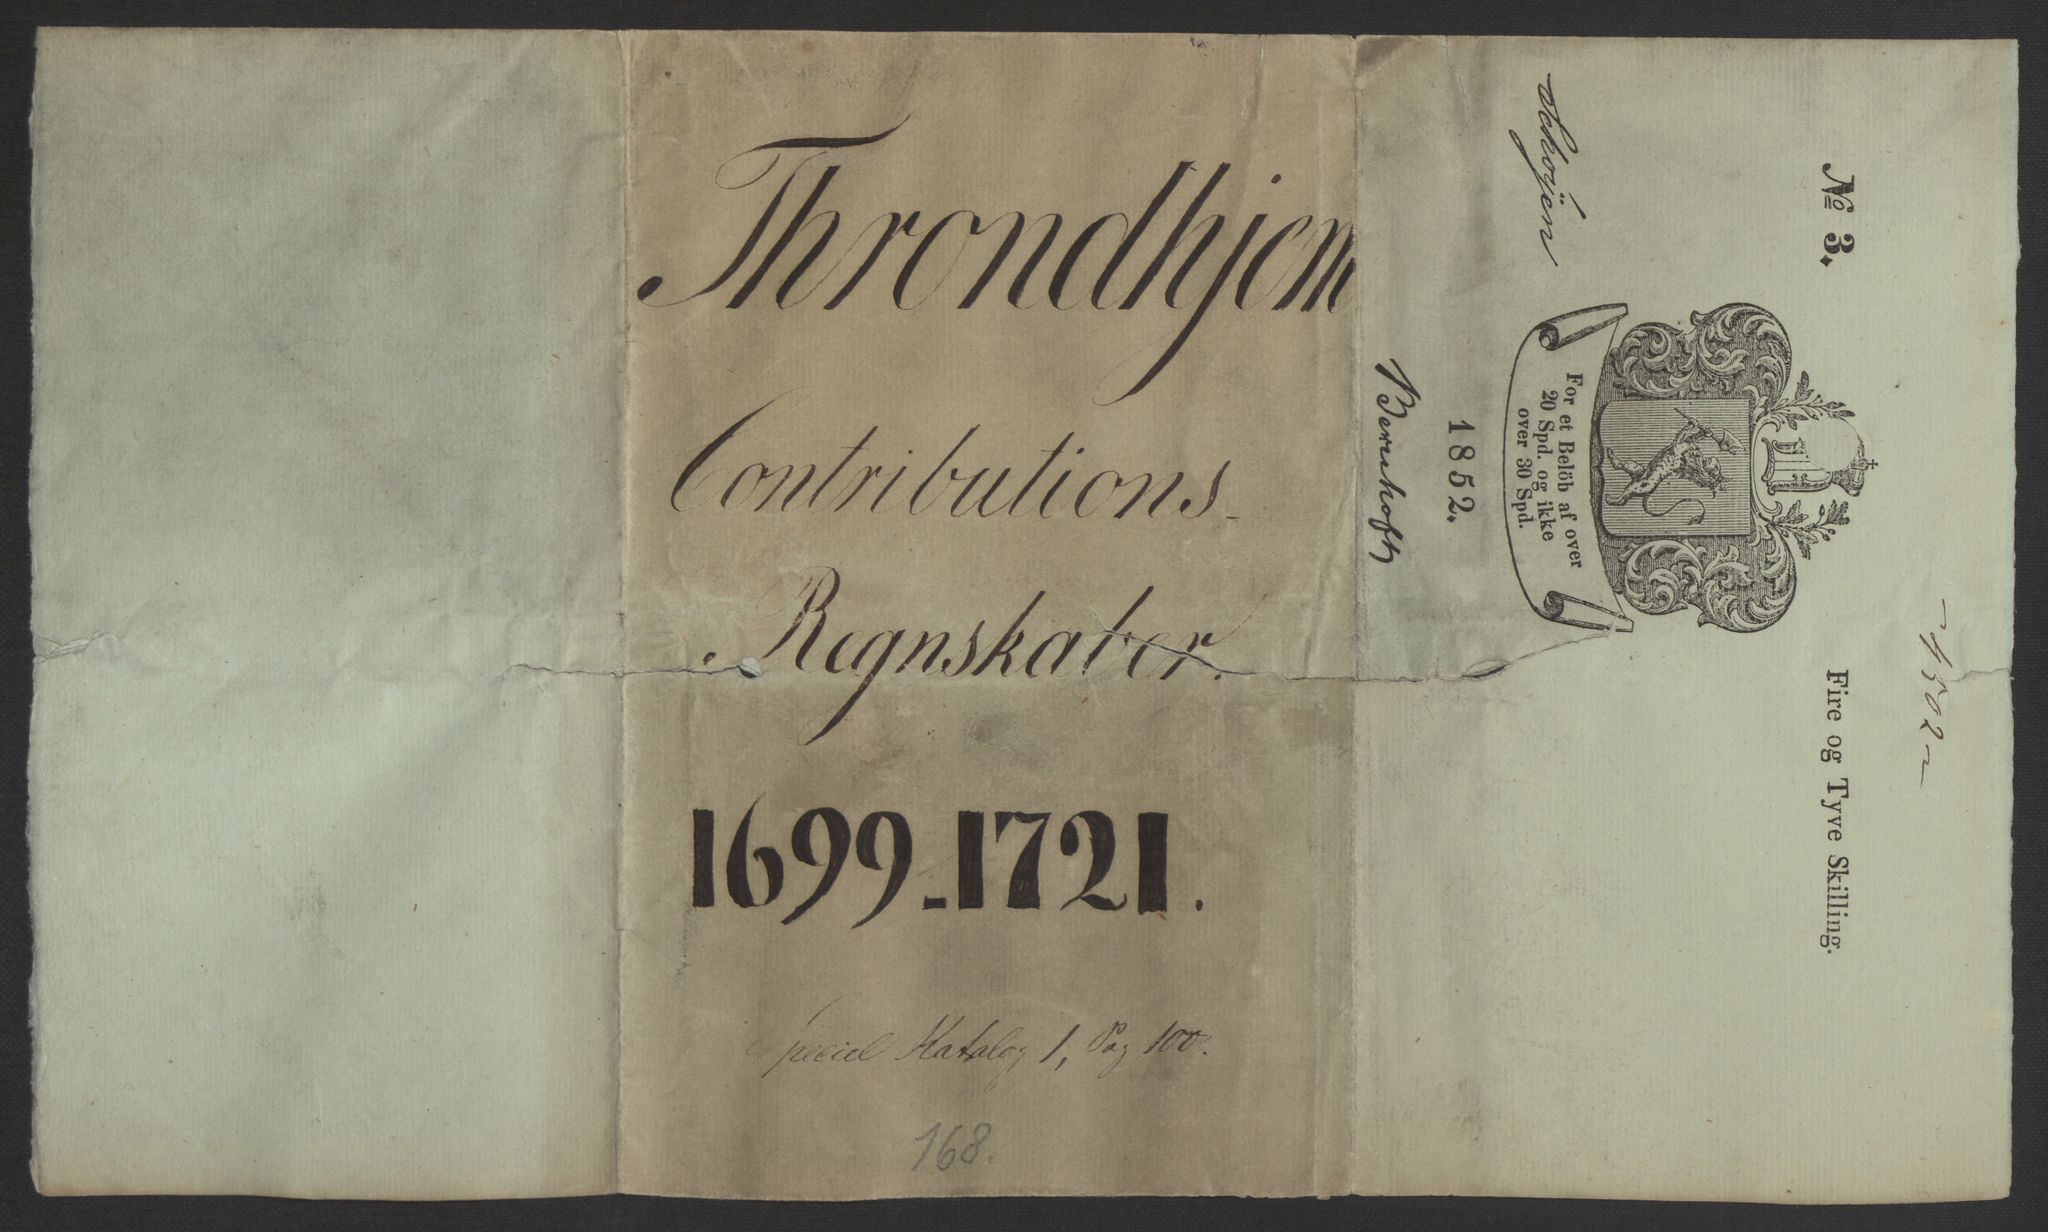 Throndhjem
Contributions-
Regnskaber.
1699-1721.
Speciel Katalog 1, Pag 100.
168.
No 3.
Fire og Tyve Skilling.
For et Belöb af over
20 Spd. og ikke
over 30 Spd.
1852.
Schøyen
Berenhoft